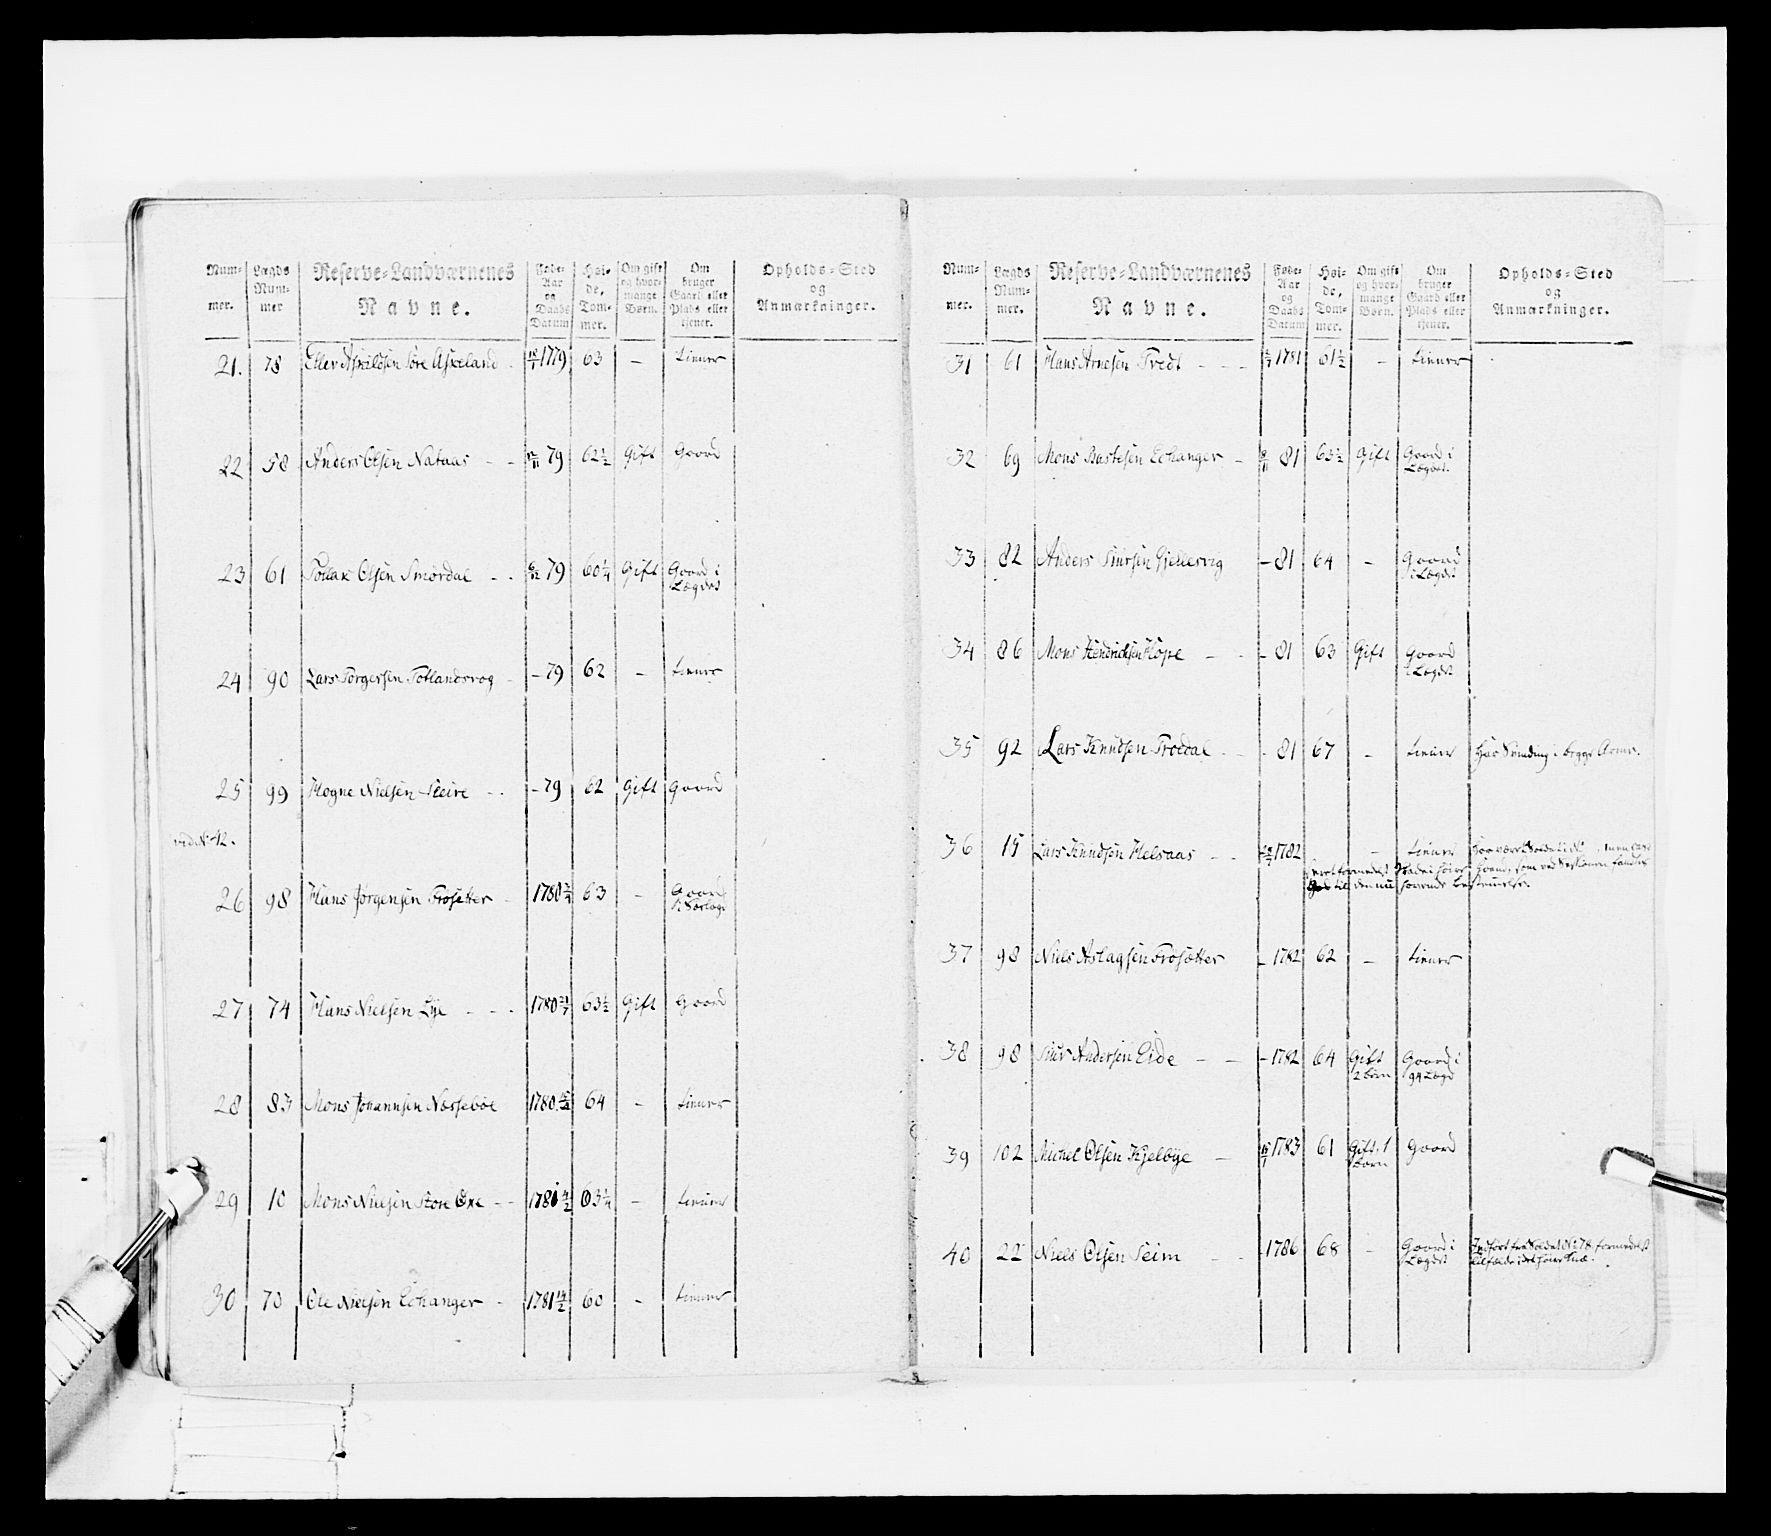 Num-
mer.
Lægds
Num-
mer
Reserve-Landværnenes
Navne.
Føde-
Aar
og
Daabs
Datum
Høi-
de,
Tom-
mer.
Om gift
og hvor-
mange
Børn.
Om
bruger
Gaard eller
Plads eller
tjener.
Opholds-Sted
og
Anmærkninger.
21. 78 Eller Aschildsen Søre Aschland 1779 63 - tiener
22 58 Anders Olsen Nataas - - 79 62½ Gift Gaard
23 61 Tollak Olsen Smørdal - - 79 60¼ Gift Gaard i
Lægdet
24 90 Lars Torgersen Totlandsvog - - 79 62 - tiener
25 99 Hogne Nielsen Sleire - - - 79 62 Gift Gaard
vid No 42.
26 98 Hans Jørgensen Frosetter - 1780 63 - Gaard
27 74 Hans Nielsen Lye - - - 1780 63½ Gift Gaard
28 83 Mons Johannsen Nossebøe 1780 64 - tiener
29 10 Mons Nielsen Store Oxe - - 63¼ - tiener
30 70 Ole Nielsen Echanger - 1781 60 - tiener
Num-
mer.
Lægds
Num-
mer.
Reserve-Landværnenes
Navne.
Føde-
Aar
og
Daabs
Datum
Høi-
de,
Tom-
mer.
Om gift
og hvor-
mange
Børn.
Om
bruger
Gaard eller
Plads eller
tjener.
Opholds-Sted
og
Anmærkninger.
31 61 Hans Arnesen Tvedt - - - 1781 61½ - tiener
32 69 Mons Bastesen Echanger - 81 63½ Gift Gaard i
Lægdet.
33 82 Anders Siursen Gjellesvig - 81 64 - Gaard
i Lægdet
34 86 Mons Hendrichsen Hope - - - 81 63 Gift Gaard
i Lægdet
35 92 Lars Knudsen Troedal - - - 81 67 - tiener Har Svinding i begge Arme.
36 15 Lars Knudsen Helsaas - - 1782 - tiener
37 98 Niels Aslagsen Frosetter - 1782 62 - tiener
38 98 Siur Andersen Eide - - - 1782 64 Gift Gaard i
2 børn 99 Lægd
39 102 Michel Olsen Kjelbye - 1783 61 Gift, 1 Gaard
barn
40 22 Niels Olsen Seim - - 1786 68 - Gaard i
Lægdet